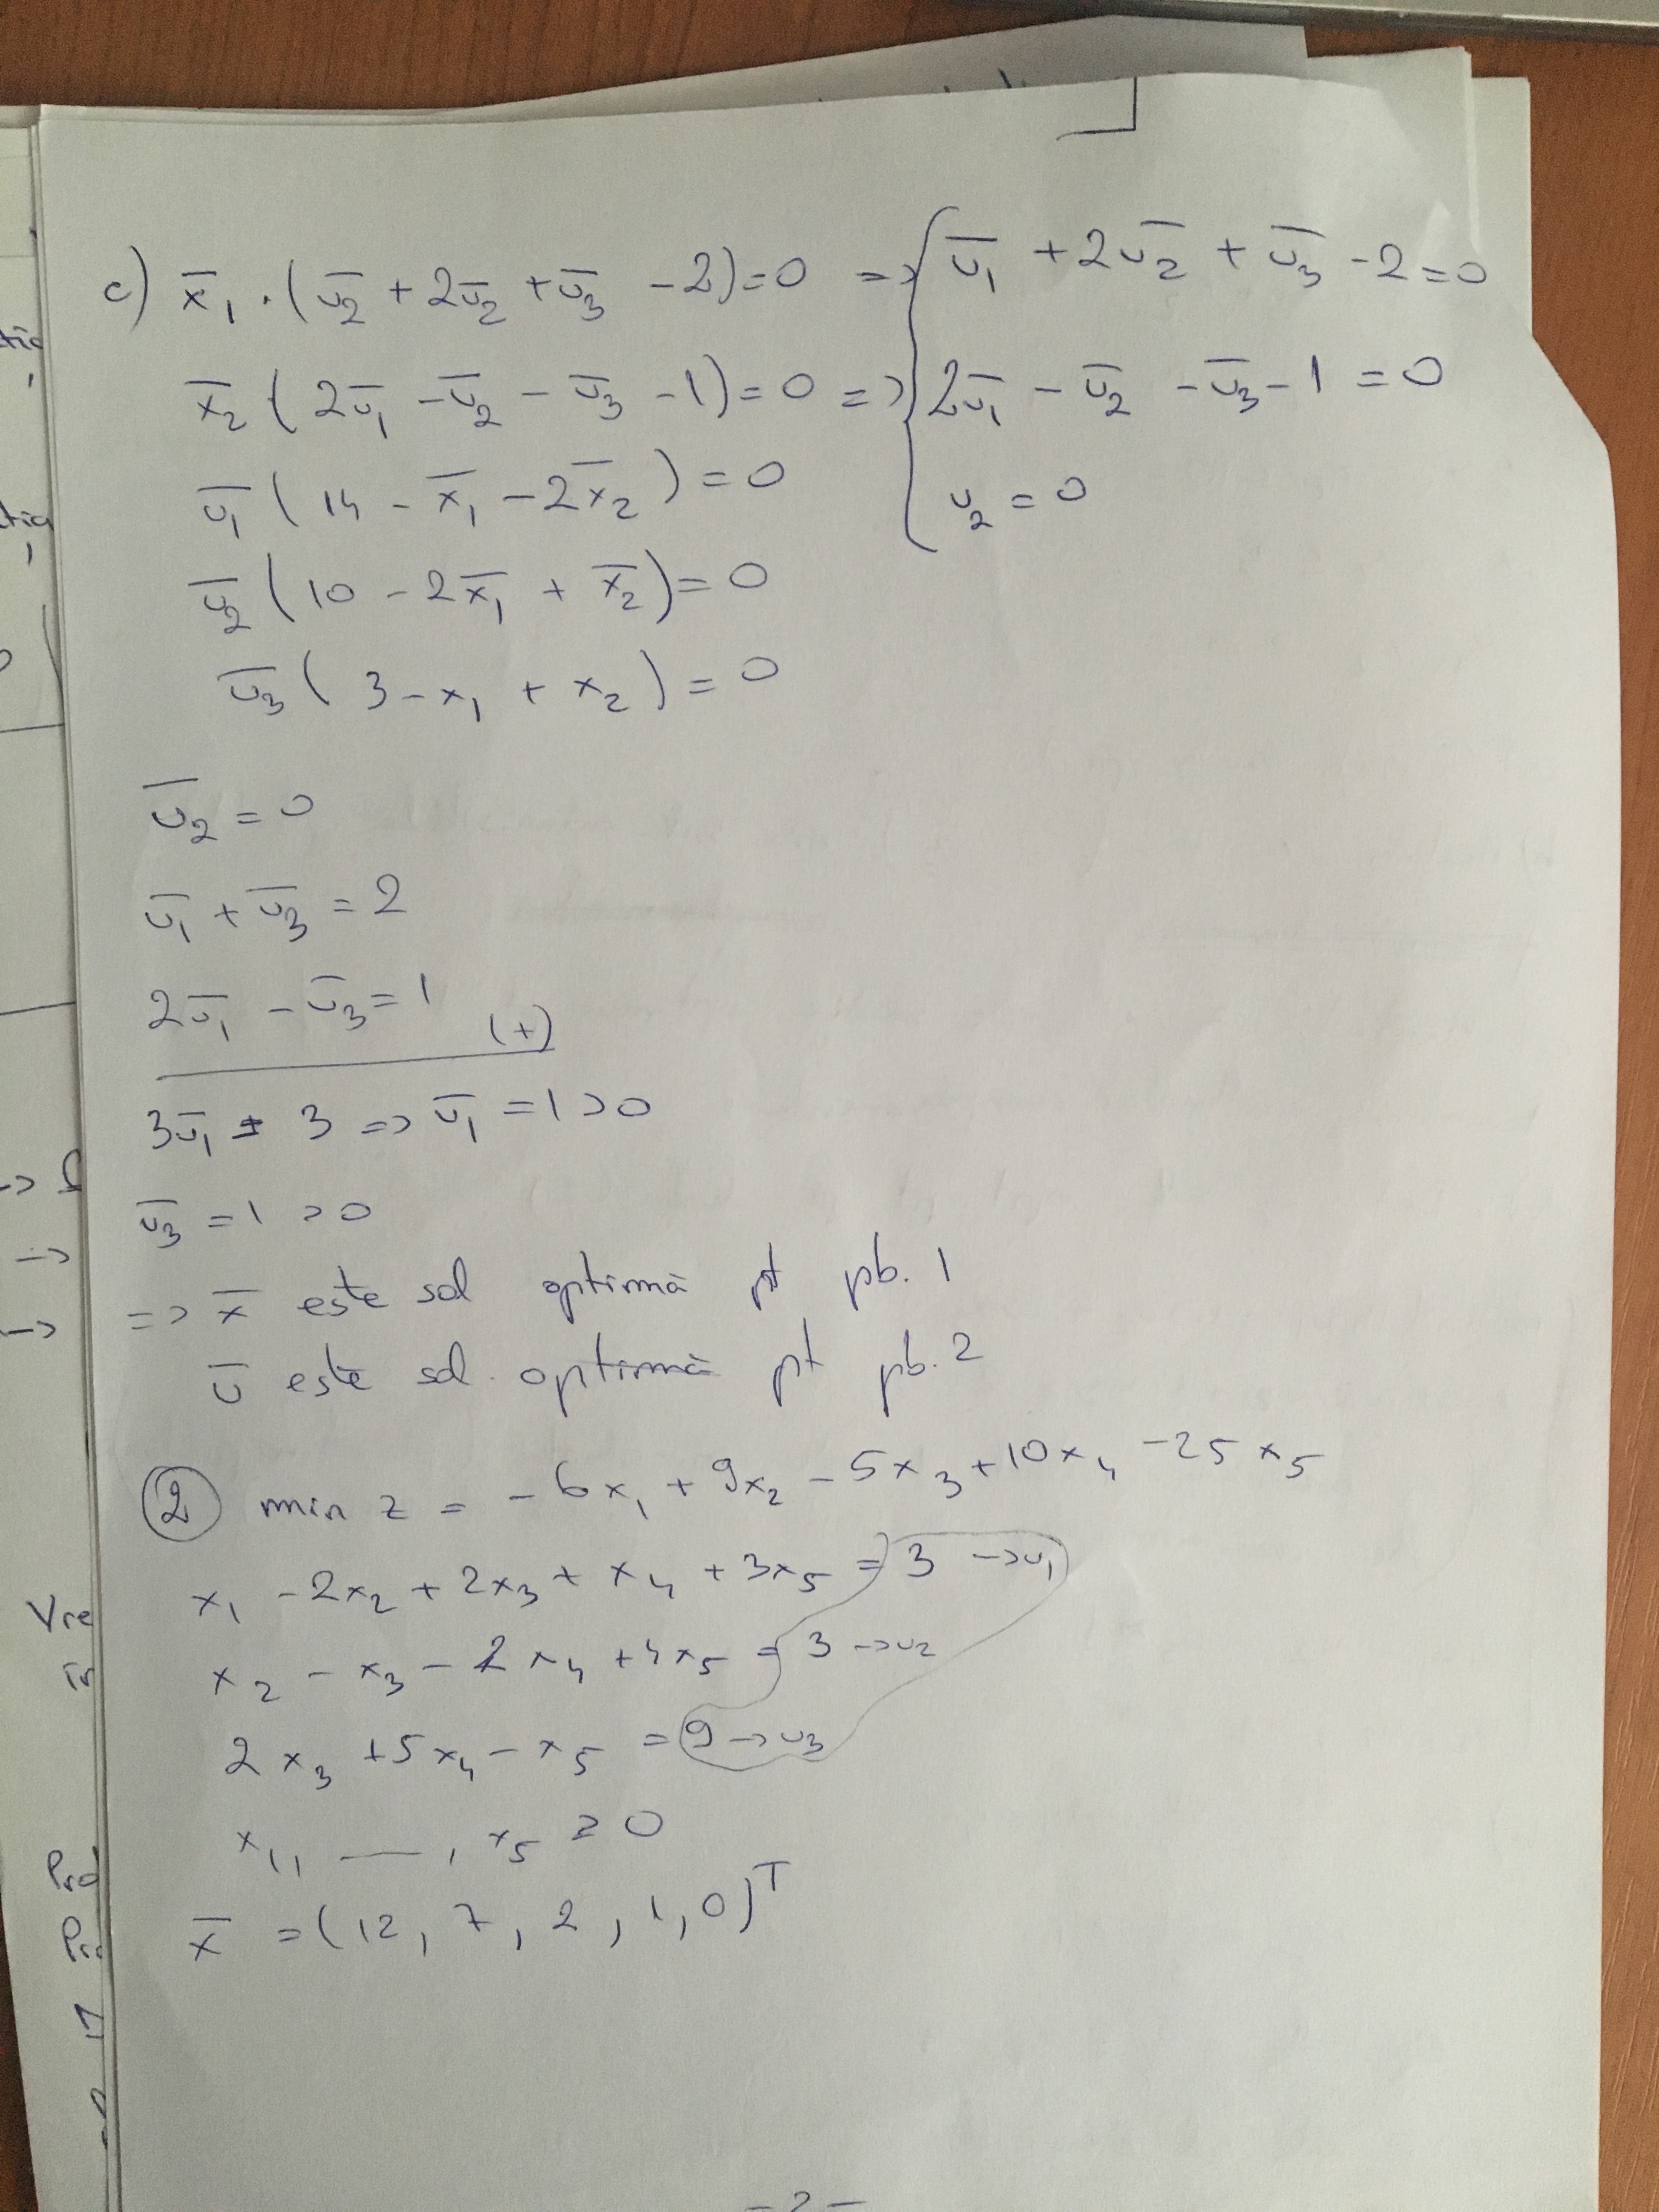 c) x̄₁ · (ū₂ + 2ū₂ + ū₃ - 2) = 0 => { ū₁ + 2ū₂ + ū₃ - 2 = 0
x̄₂ (2ū₁ - ū₂ - ū₃ - 1) = 0 => 2ū₁ - ū₂ - ū₃ - 1 = 0
ū₁ (14 - x̄₁ - 2x̄₂) = 0 u₂ = 0
ū₂ (10 - 2x̄₁ + x̄₂) = 0
ū₃ (3 - x₁ + x₂) = 0
ū₂ = 0
ū₁ + ū₃ = 2
2ū₁ - ū₃ = 1 (+)
3ū₁ = 3 => ū₁ = 1 > 0
ū₃ = 1 > 0
=> x̄ este sol optimă pt pb. 1
ū este sol. optimă pt pb. 2
② min z = - 6x₁ + 9x₂ - 5x₃ + 10x₄ - 25x₅
x₁ - 2x₂ + 2x₃ + x₄ + 3x₅ = 3 -> u₁
x₂ - x₃ - 2x₄ + 4x₅ = 3 -> u₂
2x₃ + 5x₄ - x₅ = 9 -> u₃
x₁, — , x₅ ≥ 0
x̄ = (12, 7, 2, 1, 0)ᵀ